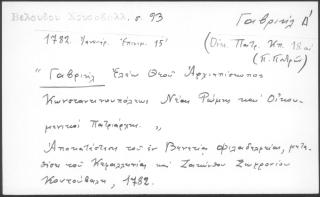 Βελούδου Χρυσόβουλλ, σ. 93
Γαβριήλ Δ'
1782 Ἰαννουαρ. Ἐπινεμ. 15'
(Οἰκ. Πατρ. Κπ. 18 αἰ
(π. Πατρῶν)
"Γαβριήλ Ἐλέῳ Θεοῦ Ἀρχιεπίσκοπος
Κωνσταντινουπόλεως Νέας Ῥώμης καὶ Οἰκου-
μενικὸς Πατριάρχης. "
Ἀποκατάστασις τοῦ ἐν Βενετίᾳ Φιλαδελφείας, μετάθε-
σις τοῦ Κεφαλληνίας καὶ Ζακύνθου Σωφρονίου
Κουτούβαλη, 1782.